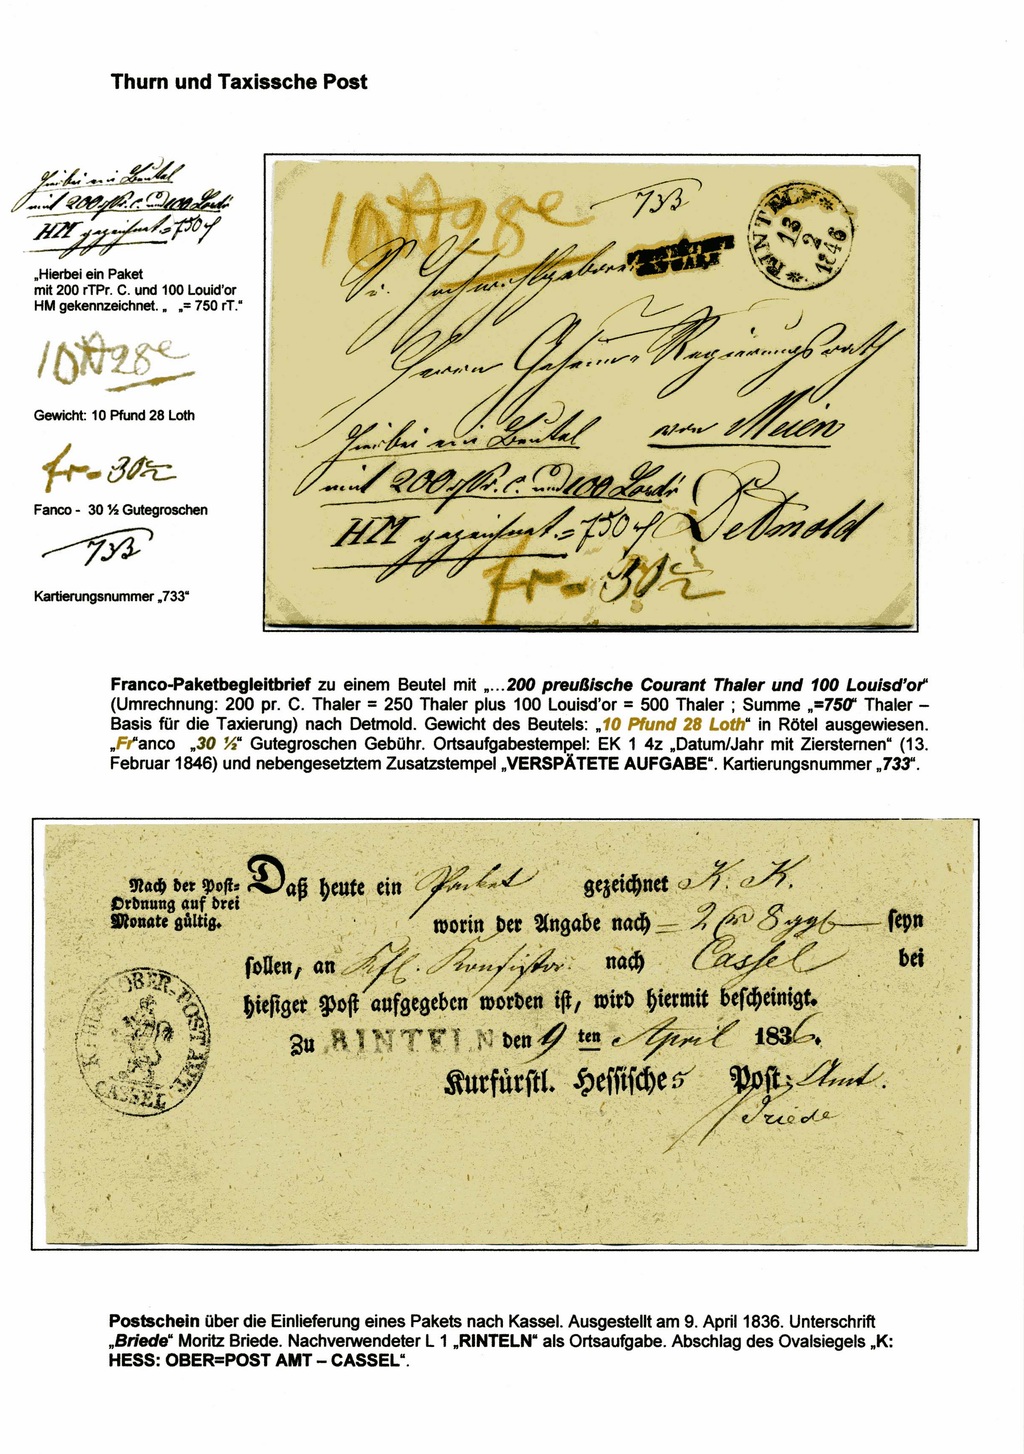 Thurn und Taxissche Post
Hierbei ein Beutel
mit 200 rPr. C. und 100 Lousdr
HM gezeichnet = 750 r
„Hierbei ein Paket
mit 200 rTPr. C. und 100 Louid'or
HM gekennzeichnet. „ „= 750 rT.“
10 28
Gewicht: 10 Pfund 28 Loth
fr = 30½
Fanco - 30 ½ Gutegroschen
733
Kartierungsnummer „733“
10 28
733
RINTELN
13
2
1846
VERSPÆTETE
AUFGABE
Sr. Hochwohlgeboren
Herrn Geheime Regierungsrath
Hierbei ein Beutel von Meien
mit 200 rPr. C. und 100 Lousdr
HM gezeichnet. = 750 r Detmold
fr = 30½
Franco-Paketbegleitbrief zu einem Beutel mit „...200 preußische Courant Thaler und 100 Louisd'or“
(Umrechnung: 200 pr. C. Thaler = 250 Thaler plus 100 Louisd'or = 500 Thaler ; Summe „=750“ Thaler –
Basis für die Taxierung) nach Detmold. Gewicht des Beutels: „10 Pfund 28 Loth“ in Rötel ausgewiesen.
„Fr“anco „30 ½“ Gutegroschen Gebühr. Ortsaufgabestempel: EK 1 4z „Datum/Jahr mit Ziersternen“ (13.
Februar 1846) und nebengesetztem Zusatzstempel „VERSPÄTETE AUFGABE“. Kartierungsnummer „733“.
Nach der Post=
Ordnung auf drei
Monate gültig.
Daß heute ein Packet gezeichnet K. K.
worin der Angabe nach = 2 8 ggb seyn
sollen, an Kfl. Konsistor. nach Cassel bei
hiesiger Post aufgegeben worden ist, wird hiermit bescheinigt.
Zu RINTELN den 9 ten April 1836.
Kurfürstl. Hessisches Post=Amt.
Briede
K: HESS: OBER=POST AMT
CASSEL
Postschein über die Einlieferung eines Pakets nach Kassel. Ausgestellt am 9. April 1836. Unterschrift
„Briede“ Moritz Briede. Nachverwendeter L 1 „RINTELN“ als Ortsaufgabe. Abschlag des Ovalsiegels „K:
HESS: OBER=POST AMT – CASSEL“.